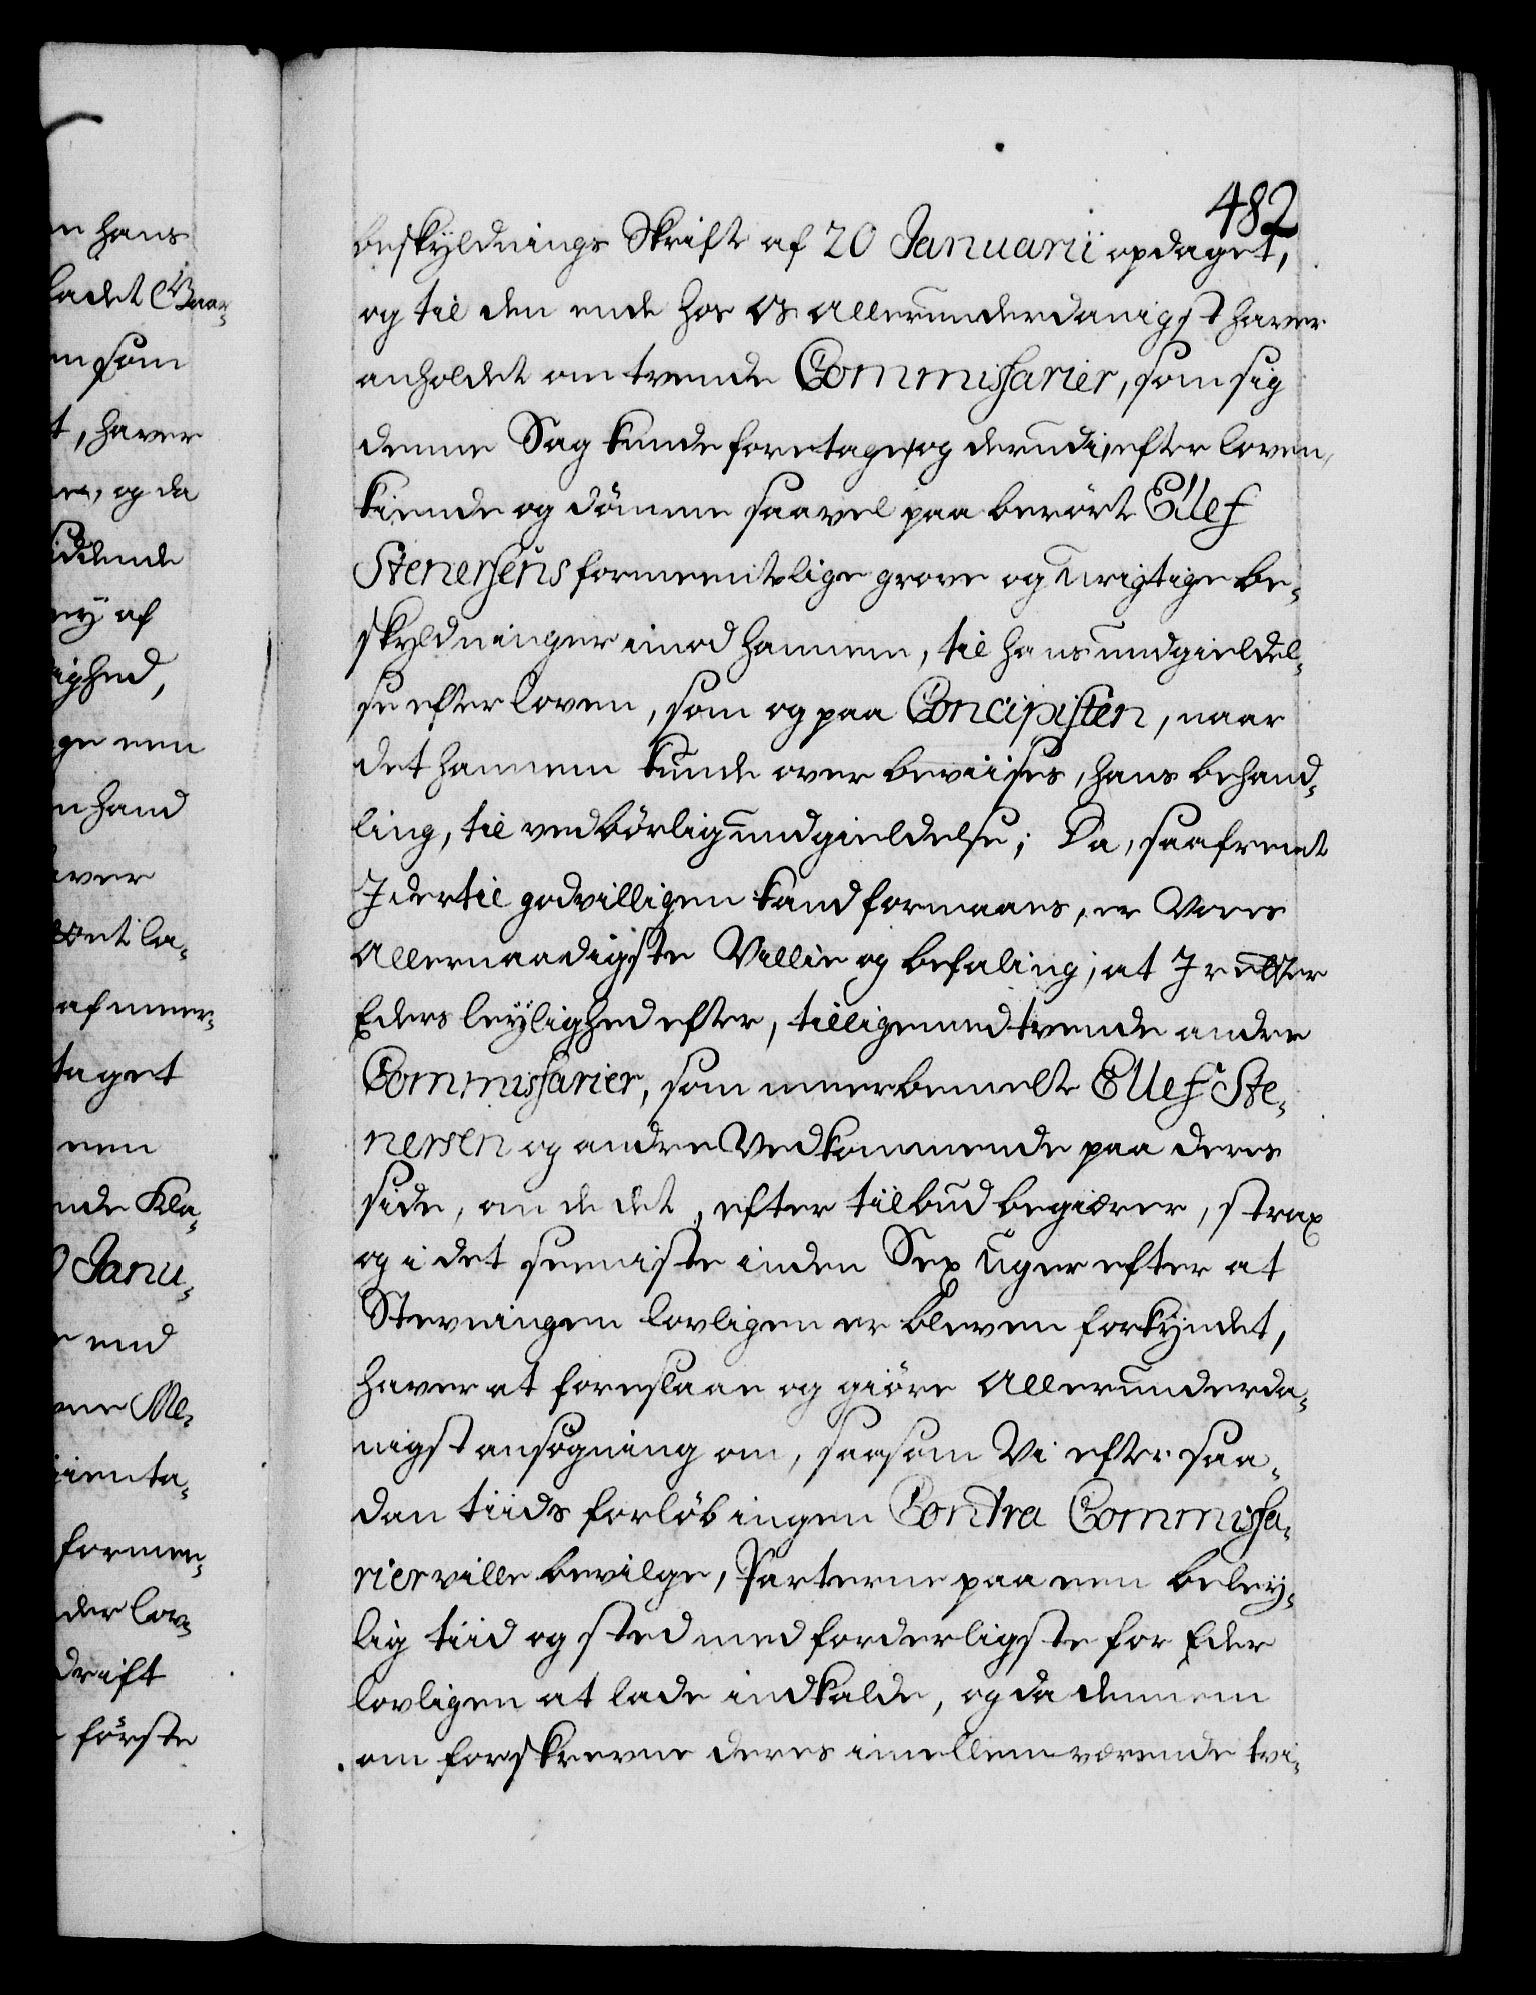 n hans
ladet Gaar-
m som
t, haver
og da
idende
ey af
ighed,
ge een
n hand
aver
et la-
af meer-
taget
een
nde Kla-
0 Janu-
end
ne Me-
ienta-
formee-
der lov-
drift
første
482
beskyldnings Skrift af 20 Januarii opdaget,
og til den ende hos Os Allerunderdanigst haver
anholdet om tvende Commissarier, som sig
denne Sag kunde foretage, og derudi, efter loven,
kiende og dömme saavel paa berört Ellef
Stenersens formeentlige grove og urigtige be-
skyldninger imod hannem, til hans undgieldel-
se efter loven, som og paa Concipisten, naar
det hannem kunde over beviises, hans behand-
ling, til vedbörlig undgieldelse; Da, saafremt
I dertil godvilligen kand formaaes, er Vores
Allernaadigste Villie og befaling, at I retter
Eders leylighed efter, tilligemed tvende andre
Commissarier, som meerbemelte Ellef Ste-
nersen og andre Vedkommende paa deres
side, om de det, efter tilbud begiærer, strax
og i det seeniste inden Sex Uger efter at
Stevningen lovligen er bleven forkyndet,
haver at foreslaae og giöre Allerunderda-
nigst ansögning om, saasom Vi efter saa-
dan tiids forlöb ingen Contra Commissa-
rier ville bevilge, Parterne paa een beley-
lig tiid og sted med forderligste for Eder
lovligen at lade indkalde, og da dennem
om forskrevne deres imellem værende tvi-